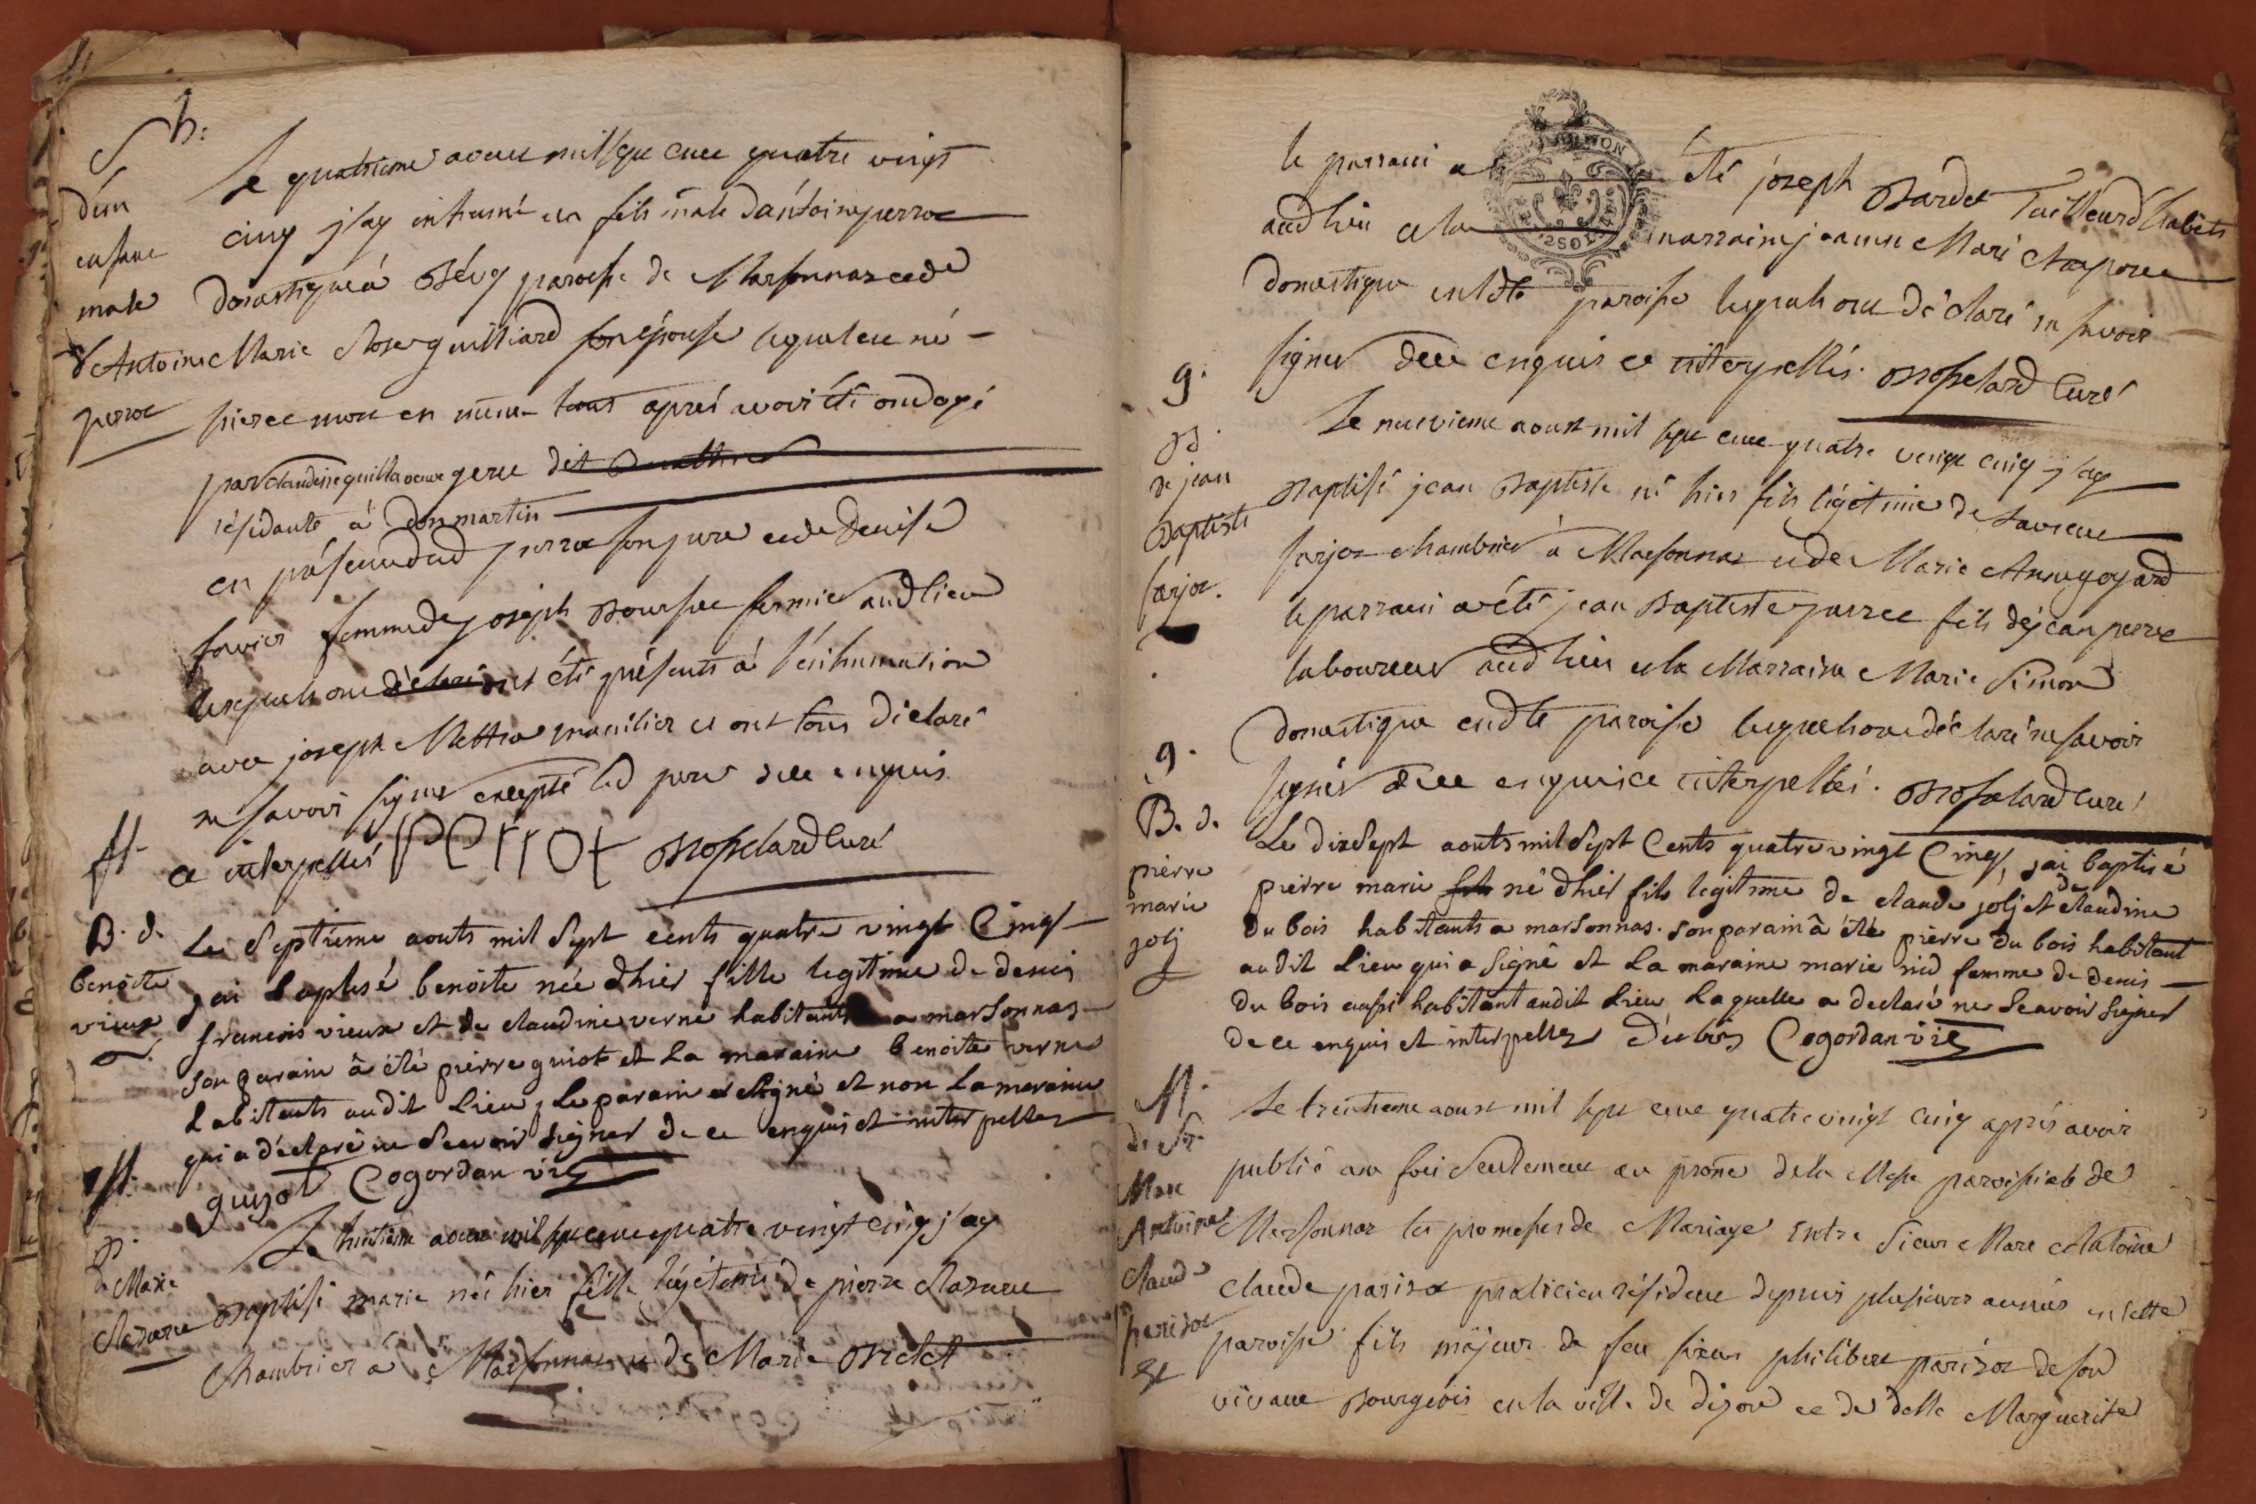 S h:
d'un
enfant
male
d'Antoine
perrot
Le quatrieme aoust mil sept cent quatre vingt
cinq j'ay inhumé un fils male d'antoine perrot
domestique à Bévy paroisse de Marsonnas et de
Marie Rose guilliard son épouse lequel est né
et mort en même tems aprés avoir été ondoyé
par Claudine guilla veuve
résidante à Donmartin
en présence dud perrot son pere et de Denise
femme de joseph fermier aud lieu
lesquels ont déclaré ont été présents à l'enhumation
avec joseph et ont tous déclaré
ne savoir signer excepté led perrot de ce enquis
et interpellés perrot curé
B. d.
benoite
vieux
Le Septieme aouts mil Sept cents quatre vingt Cinq
jai baptisé benoite née d'hier fille legitime de denis
francois vieux et de claudine verne habitants a marsonnas
son parain â été pierre guiot et La maraine benoite verne
habitants audit Lieu, Le parain a signé et non La maraine
qui a déclaré ne Scavoir Signer de ce enquis et interpellez
guiot Cogordan vic
B.
de Marie
Le huitieme aoust mil sept cent quatre vingt cinq j'ay
Baptisé marie née hier fille légitime de pierre
Chambrier à Marsonnas et de Marie
le parrain a été joseph Bardet Tailleur d'habits
aud lieu et la marraine jeanne Marie
domestique en lade paroisse lesquels ont déclaré ne savoir
signer de ce enquis et interpellés. curé
9.
B.
de jean
Baptiste
farjot.
Le neuvieme aoust mil sept cent quatre vingt cinq j'ay
Baptisé jean Baptiste né hier fils légitime de Laurent
farjot chambrier à Marsonnas et de Marie Anne goyard
le parrain a été jean Baptiste perret fils de jean perret
laboureur aud lieu et la Marraine Marie Simon
domestique en ladte paroisse lesquels ont déclaré ne savoir
signer de ce enquis et interpellés. curé
9.
B. d.
pierre
marie
jolj
Le dix Sept aouts mil Sept Cents quatre vingt Cinq, jai baptisé
pierre marie né d'hier fils legitime de claude jolj et de claudine
du bois habitants a marsonnas. son parain â été pierre du bois habitant
audit Lieu qui a signé et La maraine marie nid femme de denis
du bois aussi habitant audit Lieu Laquelle a declaré ne Scavoir Signer
de ce enquis et interpellez Dubois Cogordan vic
M.
de Sr.
Marc
Antoine
Claude
parizot
&
Le trentieme aoust mil sept cent quatre vingt cinq aprés avoir
publié une fois Seulement au prône de la Messe paroissiale de
Marsonnas les promesses de Mariage entre Sieur Marc Antoine
Claude parizot praticien résident depuis plusieurs années en cette
paroisse fils majeur de feu sieur philibert parizot de son
vivant Bourgeois en la ville de Dijon et de delle Marguerite